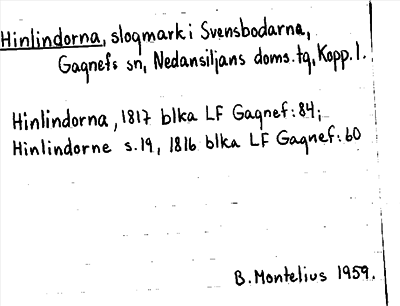 Hinlindorna, slogmark i Svensbodarna,
Gagnefs sn, Nedansiljans doms.tg, Kopp. l.
Hinlindorna, 1817 blka LF Gagnef: 84;
Hinlindorne s.19, 1816 blka LF Gagnef: 60
B. Montelius 1959.